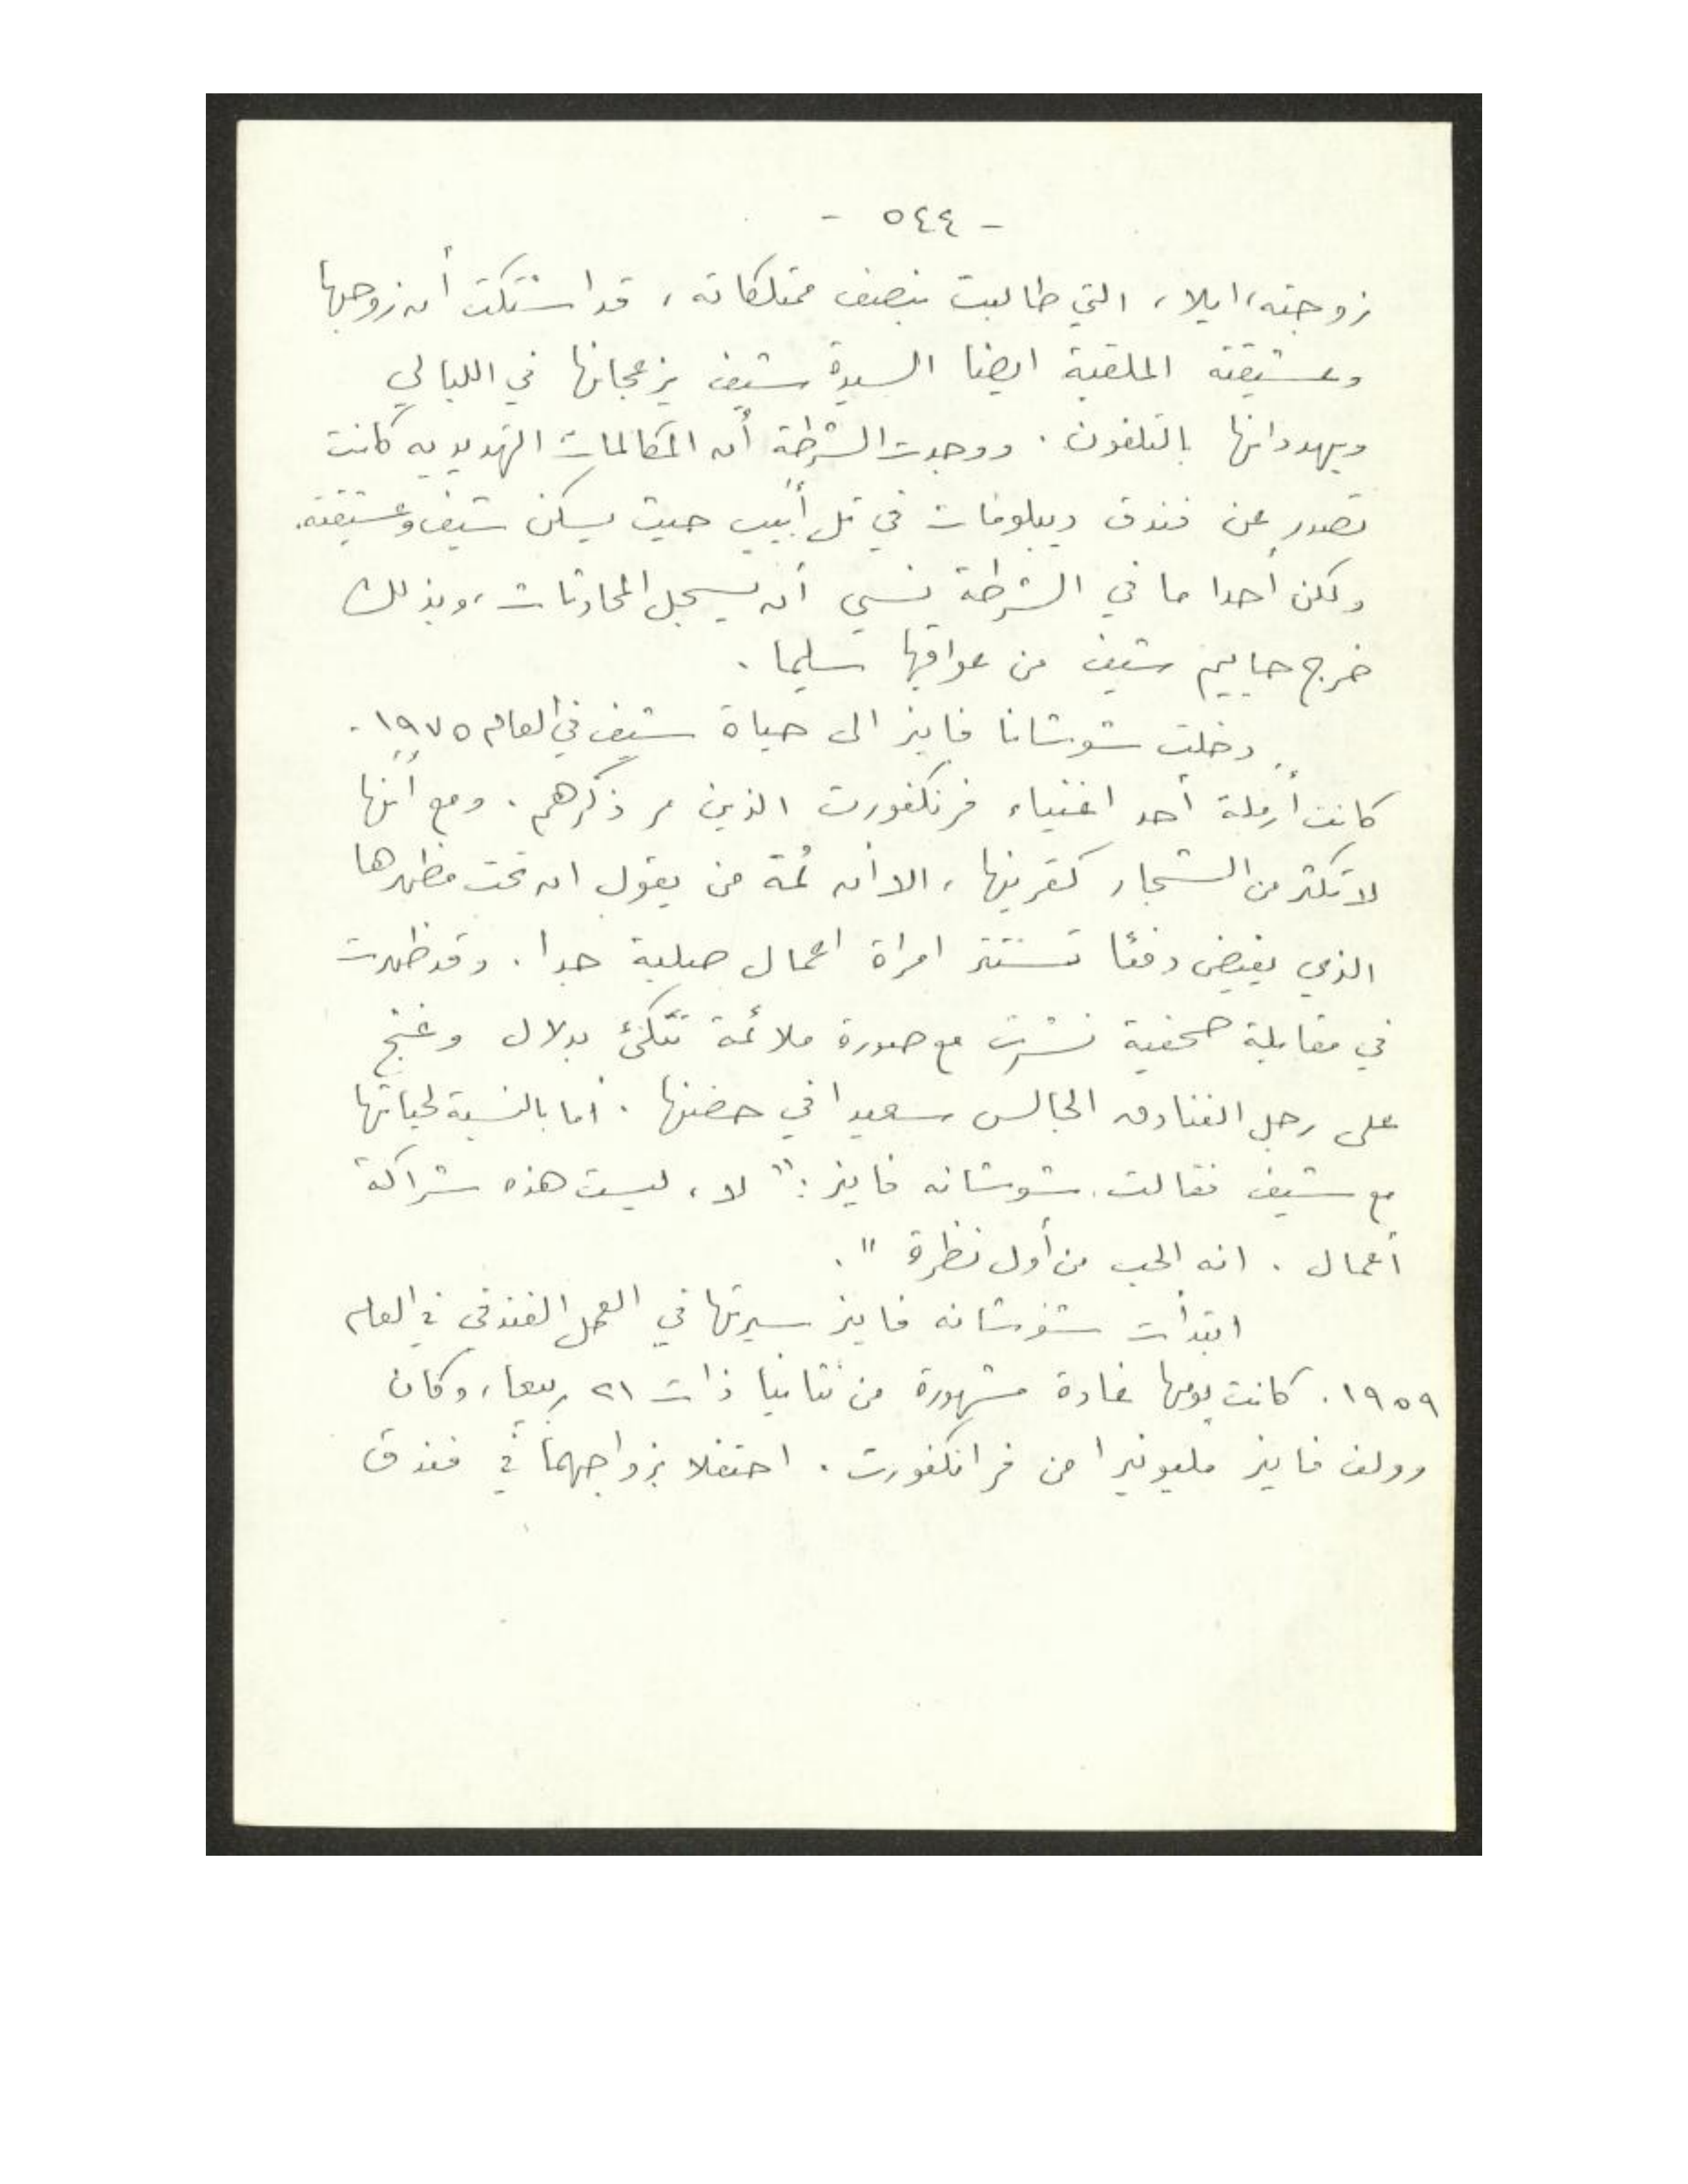 - ٥٤٤ -
زوجته، ايلا، التي طالبت بنصف ممتلكاته، قد اشتكت أن زوجها
وعشيقته الملقبة ايضا السيدة شيف يزعجانها في الليالي
ويهددانها بالتلفون. ووجدت الشرطة أن المكالمات التهديديه كانت
تصدر عن فندق ديبلومات في تل أبيب حيث يسكن شيف وعشيقته.
ولكن أحدا ما في الشرطة نسي أن يسجل المحادثات، وبذلك
خرج حاييم شيف من عواقبها سليما.
دخلت شوشانا فاينر الى حياة شيف في العام ١٩٧٥.
كانت أرملة أحد اغنياء فرنكفورت الذين مر ذكرهم. ومع أنها
لا تكثر من الشجار كقرينها، الا أن ثمة من يقول ان تحت مظهرها
الذي يفيض دفئا تستتر امراة اعمال صلبة جدا. وقد ظهرت
في مقابلة صحفية نشرت مع صورة ملائمة تتكئ بدلال وغنج
على رجل الفنادق الجالس سعيدا في حضنها. أما بالنسبة لحياتها
مع شيف فقالت شوشانه فاينر: " لا، ليست هذه شراكة
أعمال. انه الحب من أول نظرة ".
ابتدأت شوشانه فاينر سيرتها في العمل الفندقي في العام
١٩٥٩. كانت يومها غادة مشهورة من نتانيا ذات ٢١ ربيعا، وكان
وولف فاينر مليونيرا من فرانكفورت. احتفلا بزواجهما في فندق